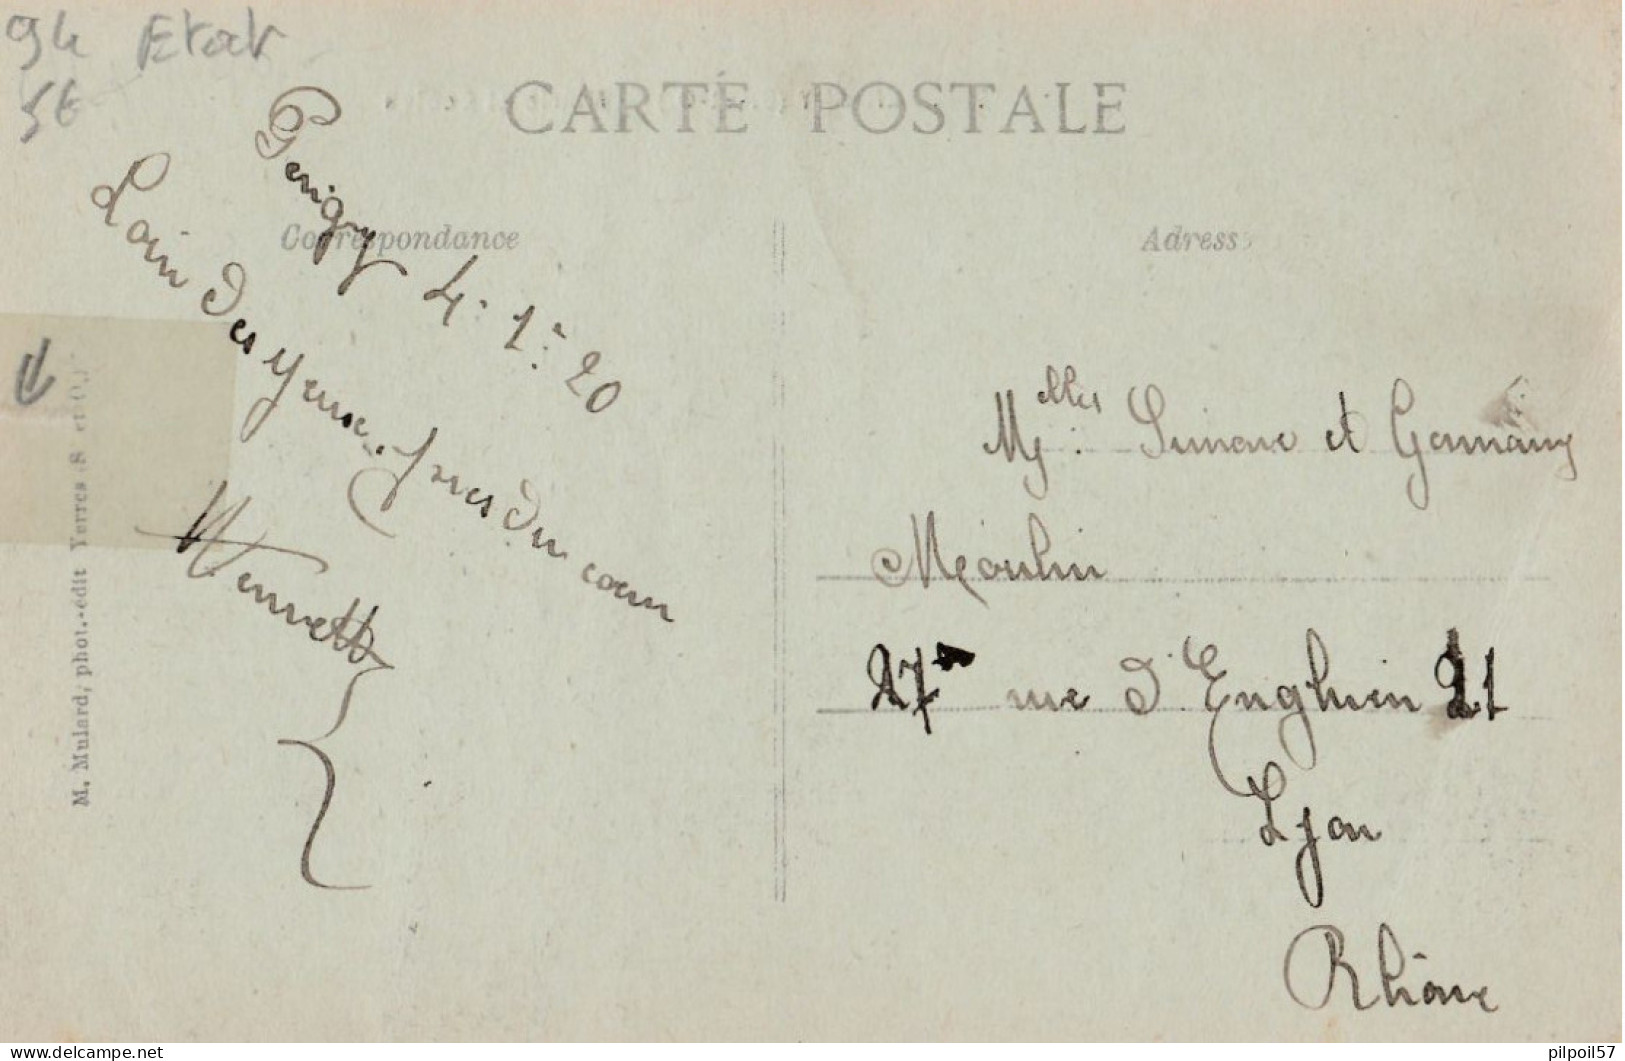 94 Etat
56
CARTE POSTALE
Correspondance
Adresse
Perigny 4. 1. 20
Loin des yeux, près du coeur
M. Mulard, phot.-édit Yerres (S. et O.)
Melles Simone et Germaine
Moulin
27 rue d'Enghien 21
Lyon
Rhône
pilpoil57